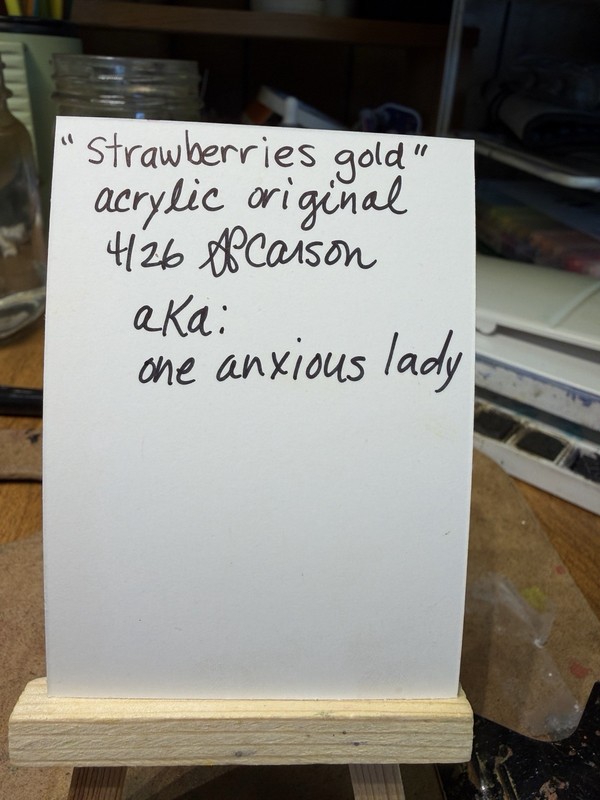 "Strawberries gold"
acrylic original
4/26 Carson
aka:
one anxious lady